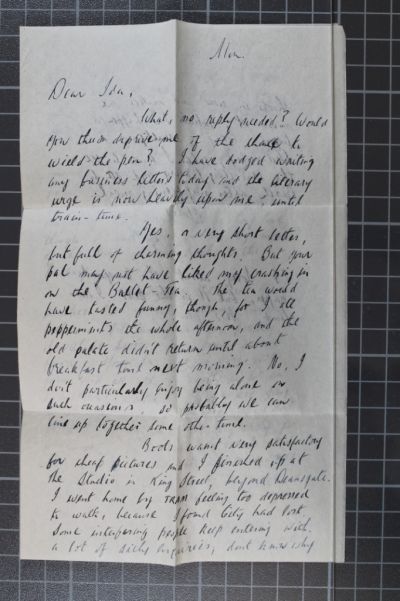 Mon.
Dear Ida,
What, no reply needed? Would
you thus deprive me of the chance to
wield the pen? I have dodged writing
any business letters today and the literary
urge is now heavily upon me, until
train-time.
Yes, a very short letter,
but full of charming thoughts. But your
pal may not have liked my crashing in
on the Ballet-Tea. The tea would
have tasted funny, though, for I ate
peppermints the whole afternoon, and the
old palate didn't return until about
breakfast time next morning. No, I
don't particularly enjoy being alone on
such occasions, so probably we can
line up together some other time.
Boots wasn't very satisfactory
for cheap pictures and I finished up at
the Studio in King Street, beyond Deansgate.
I went home by tram feeling too depressed
to walk, because I found City had lost.
Some interfering people keep entering with
a lot of silly enquiries, don't know why